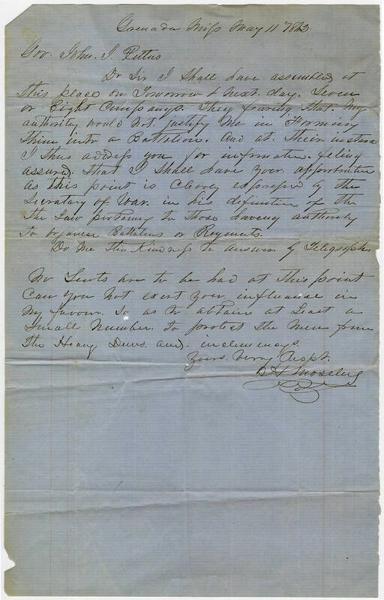 Grenada Miss May 11 1863
Gov. John. J. Pettus
Dr Sir I Shall have assembled at
this place on Tomorrow & next day. Seven
or Eight Companys. They fearing that my
authority would not justify me in Forming
them into a Battalion. And at Their instance
I thus address you for information. feling
assured that I Shall have your approbation
As this point is Clearly expressed by the
Secretary of War. in his definition of the
the Law pertaining to those haveing authority
to organise Battalions or Regiments.
Do Me the Kindness to answer by Telegraph
No Tents are to be had at this point
Can you not exert your influence in
My favour. So as to obtain at Least a
Small Number. to protect the Men from
the Heavy Dews. and. inclemencys.
Yours. Very Respt.
Moseley